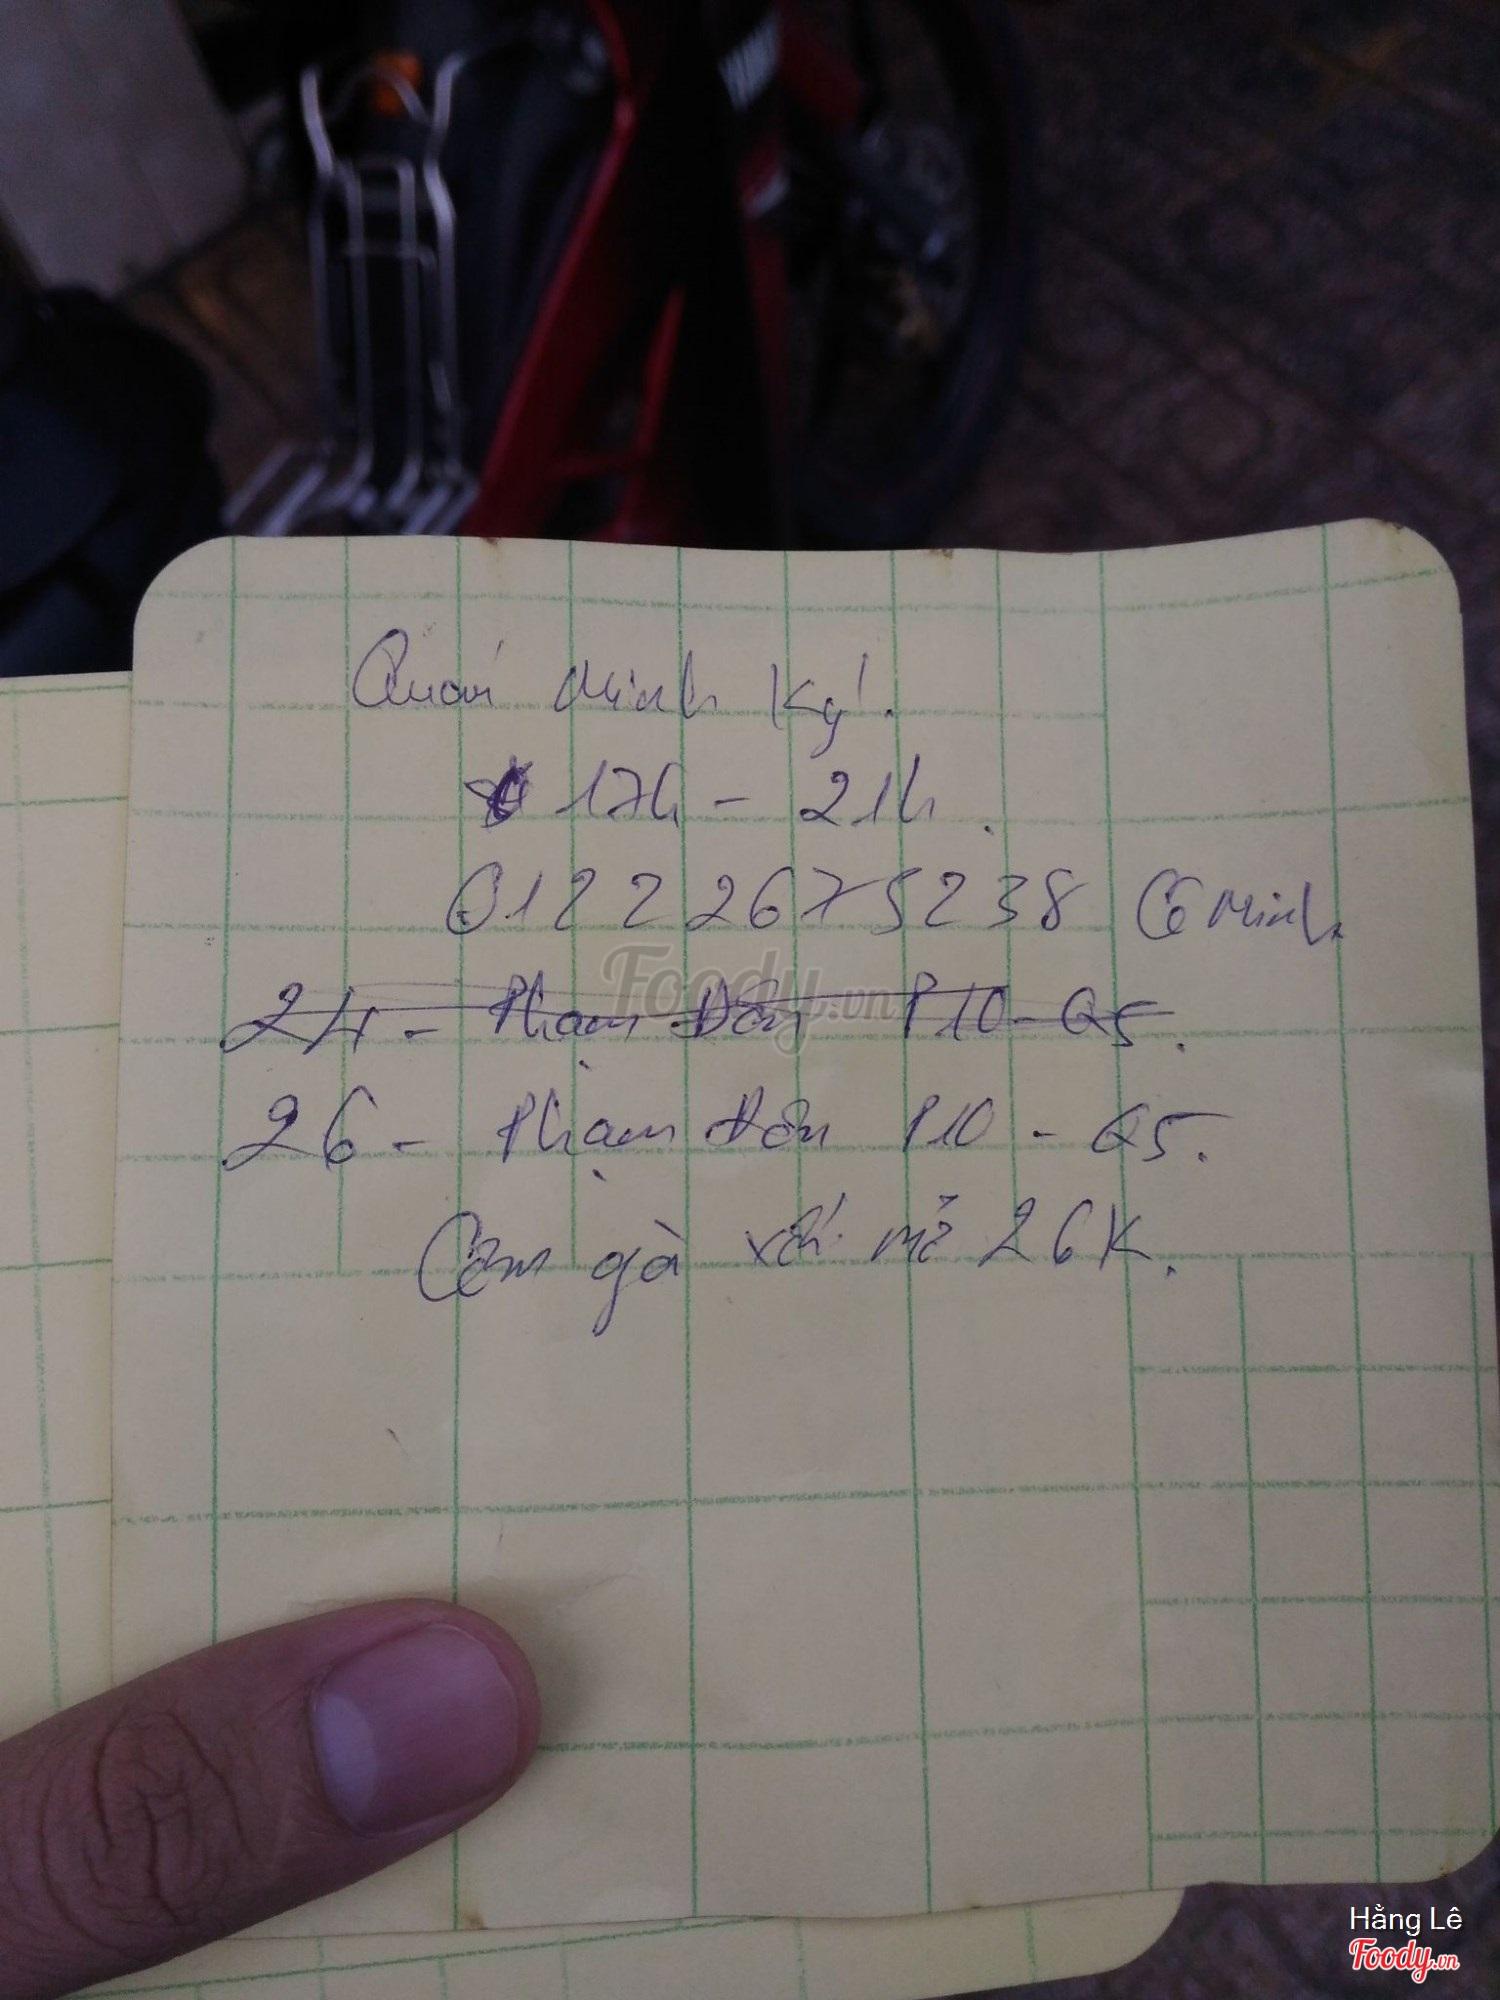 Quán Minh Ký.
17h - 21h.
01222675238 Cô Minh.
24 - Phạm Đôn P10 - Q5.
Foody.vn
26 - Phạm Đôn P10 - Q5.
Cơm gà xối mỡ 26K.
Hằng Lê
Foody.vn